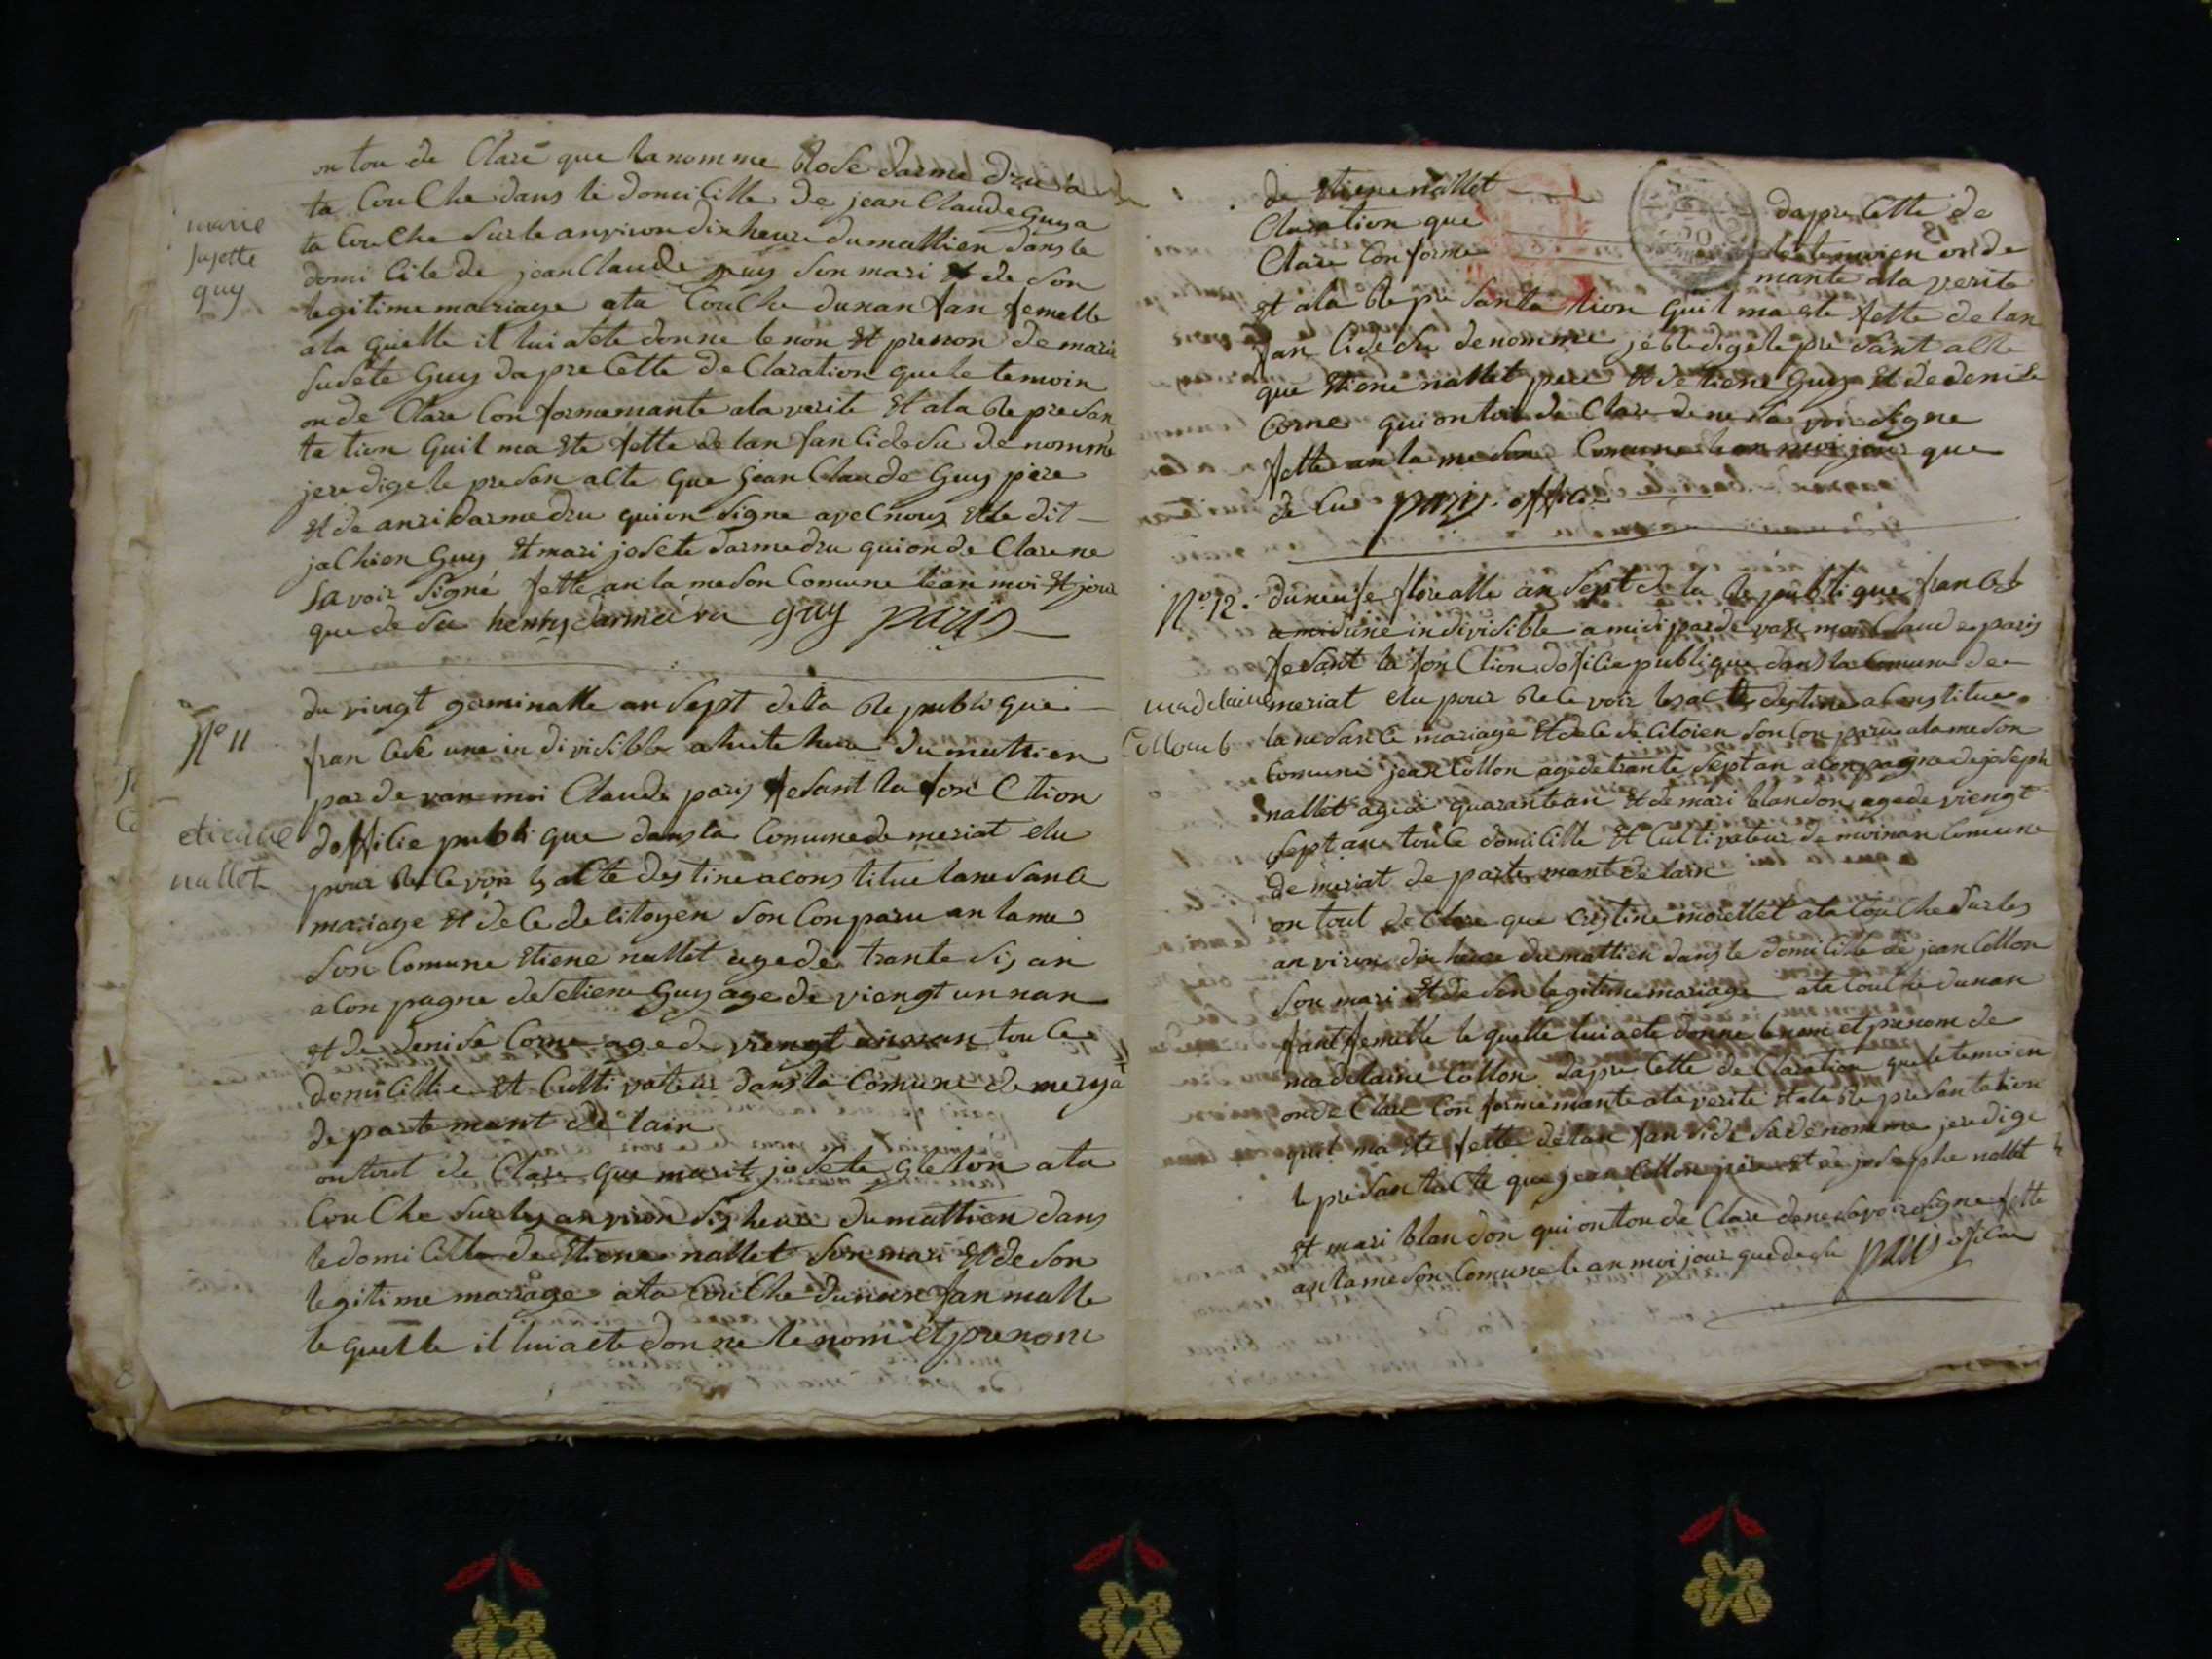 on tou de Clare que la nomme Rose darme dru a
ta Couche dans le domicille de jean Claude Guy a
ta Couche sur le anviron dix heure du mattien dans le
domi cile de jean Claude guy son mari Et de son
legitime mariage ata Couche dunan fan femelle
marie
jusette
guy
ata quelle il lui a ete donne le non Et prenon de marie
susete Guy dapre Cette de Claration que le temoin
on de Clare Con formemante ala verite Et ala Re presan
ta tion quil ma Ete fette de lan fan Ci de su de nommé
je redige le presan alte que jean Claude Guy père
Et de anri darmedru qui on signe avec nous Et le dit
jachien Guy Et mari josete darmedru qui on de Clare ne
savoir signé fette an la meson Comune le an moi Et jour
que de su henry darmedru guy paris
N° 11
du viengt germinalle an sept de la Re publi que
fran Cese une in di visible a huite heure du mattien
par de van moi Claude paris fesant la fon Ction
etienne
nallet
doffi lie publi que dans la Comune de meriat elu
pour Re Ce voir les alte des tine a cons titue la nesan Ce
mariage Et de Ce de Citoyen son Con paru an la me
son Comune Etiene nallet age de trante sis an
a Con pagne de setiene Guy age de viengt un nan
et de denise Corne age de viengt un nan tou Ce
domicillie Et Culti vateur dans la Comune de merya
de parte mant de lain
on tout de Clare que marit josete gleton ata
Couche sur les anviron sis heure du mattien dans
le domi Cille de Etiene nallet son mari Et de son
legitime mariage ata Couche dunan fan malle
le quelle il lui a ete don ne le nom Et prenom
de Etiene nallet dapre Cette de
Claration que le temoien on de
Clare Con forme mante ala verite
Et ala Re pre santa tion quil ma ete fette de lan
fan Ci de su de nomme je Re dige le pre sant alte
que Etiene nallet pere Et de tiene Guy Et de denise
Corne qui on tou de Clare de ne sa voir signe
fette an la meson Comune le an moi jour que
de su paris offici
N° 12
du neufe florealle an sept de la Re publi que fran Cese
une in divisible a midi par de van moi Claude paris
fesant la fon Ction dofilie publique dans la Comune de
madelaine
Collomb
meriat elu pour Re Ce voir les alte destine a Constitue
la nesan Ce mariage Et de Ce de Citoien son Con paru ala meson
Comune jean Collon age de trante sept an a Conpagne de joseph
nallet age de quarante an Et de mari blandon age de viengt
sept an tou Ce domicille Et Cultivateur de moinan Comune
de meriat de parte mant de lain
on tout de Clare que Cristine morellet ata Couche sur les
an viron dix heure du mattien dans le domicille de jean Collon
son mari Et de son legitime mariage ata Couche dunan
fant femelle le quelle lui a ete donne le nom et prenom de
madelaine Collon dapre Cette de Claration que le temoien
on de Clare Con formemante ala verite Et ala Re presantation
quil ma Ete fette de lan fan si de su denomme je redige
le presant alte que jean Collon père Et de josephe nallet
Et mari blan don qui on tou de Clare de ne savoir signe fette
an la meson Comune le an moi jour que de su paris oficie